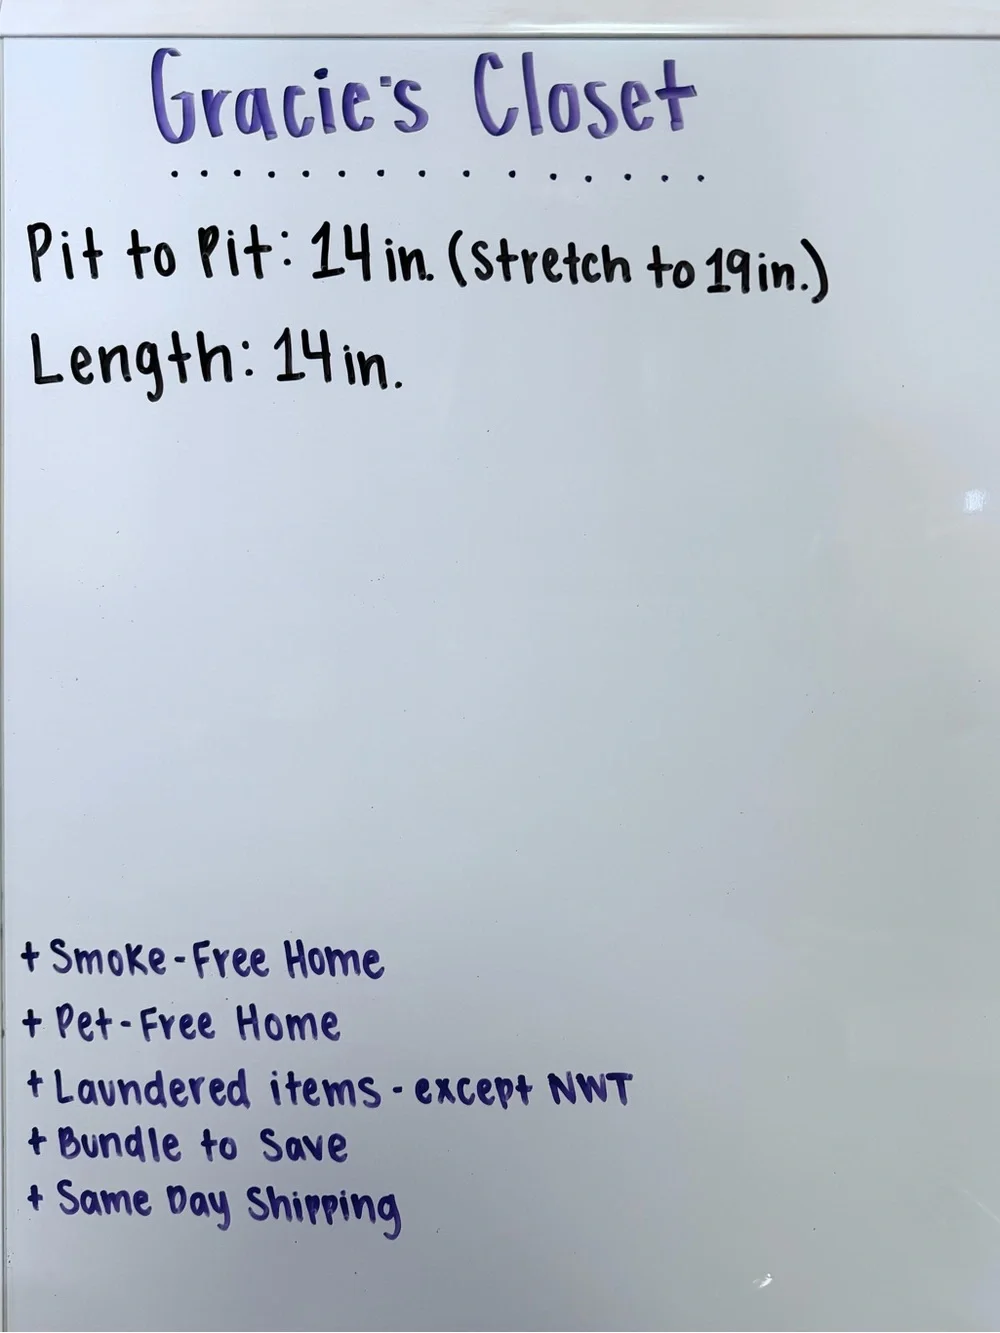 Gracie's Closet
Pit to Pit: 14in. (stretch to 19in.)
Length: 14in.
+ Smoke-Free Home
+ Pet-Free Home
+ Laundered items - except NWT
+ Bundle to Save
+ Same Day Shipping